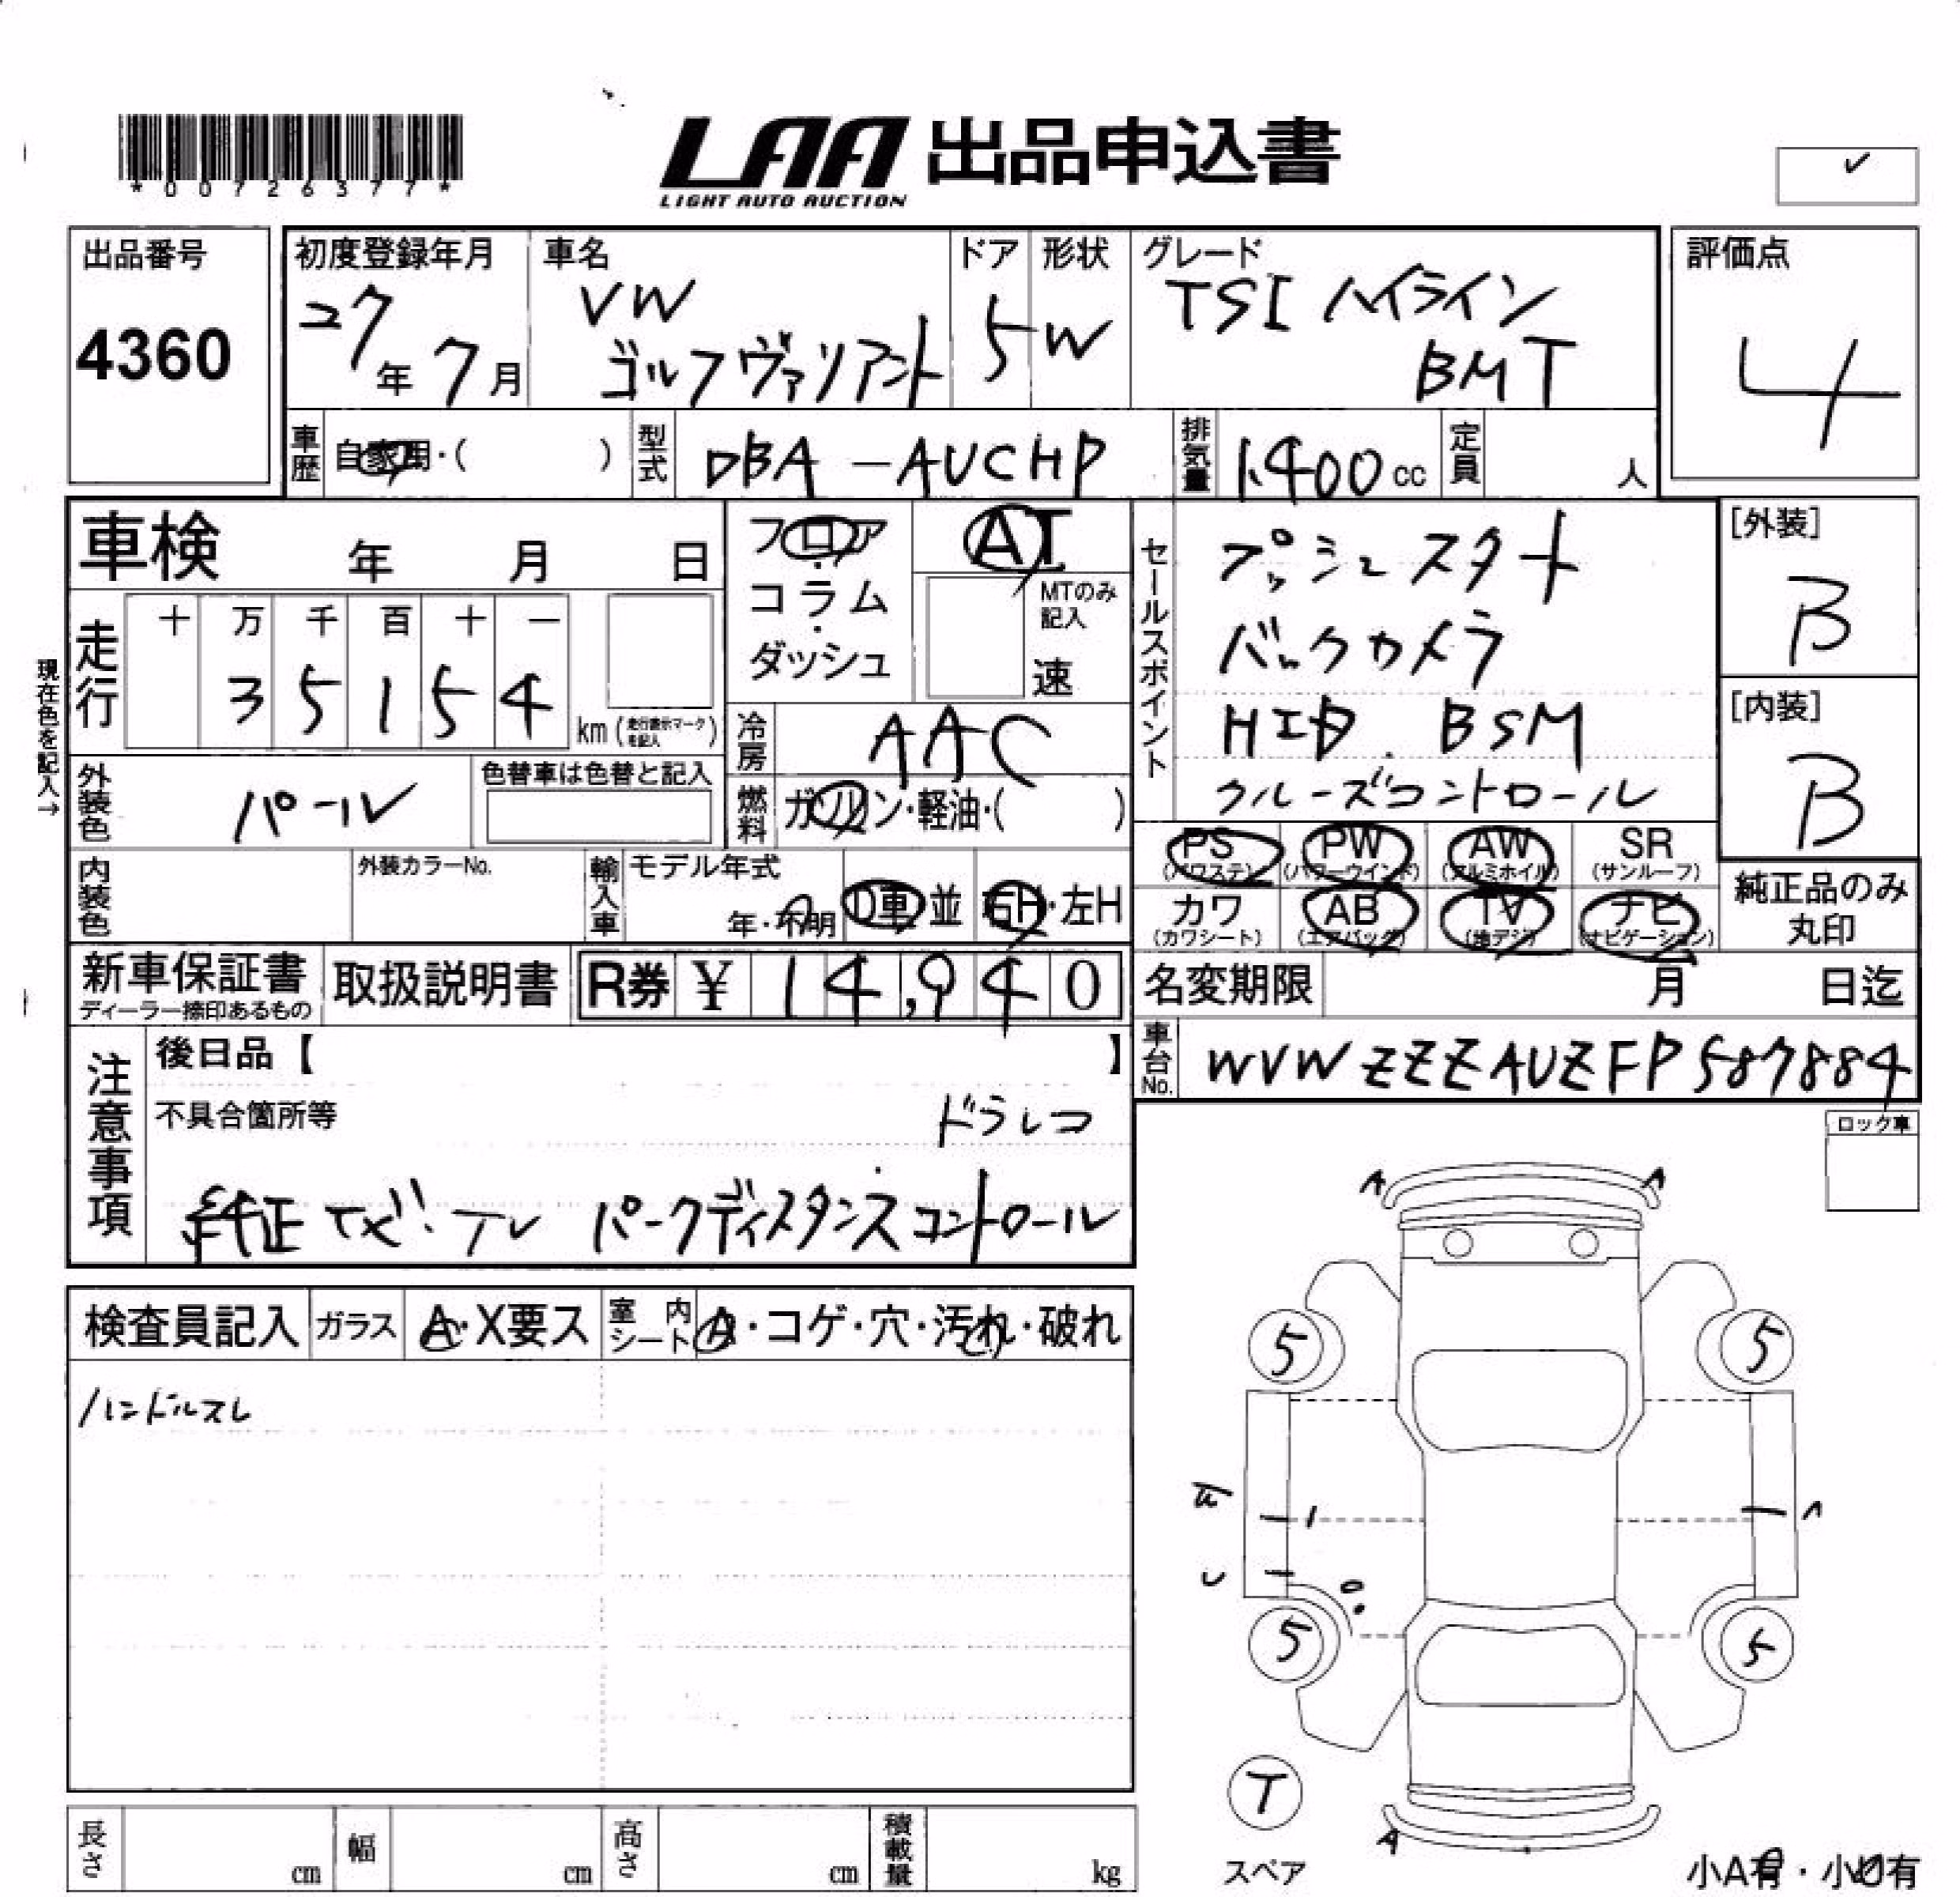 *00726377*
LAA 出品申込書
LIGHT AUTO AUCTION
✓
出品番号
4360
初度登録年月
27年7月
車名
VW
ゴルフヴァリアント
ドア
5
形状
W
グレード
TSI ハイライン
BMT
評価点
4
車歴 自家用・( )
型式 DBA-AUCHP
排気量 1,400cc
定員 人
車検 年 月 日
フロア・コラム・ダッシュ
AT
MTのみ記入
速
セールスポイント
プッシュスタート
バックカメラ
HID. BSM
クルーズコントロール
[外装]
B
[内装]
B
現在色を記入→
走行
十 万 千 百 十 一
3 5 1 5 4
km(走行表示マークを記入)
冷房 AAC
外装色 パール
色替車は色替と記入
燃料 ガソリン・軽油・( )
PS (パワステ) PW (パワーウインド) AW (アルミホイル) SR (サンルーフ)
カワ (カワシート) AB (エアバッグ) TV (地デジ) ナビ (ナビゲーション)
純正品のみ丸印
内装色
外装カラーNo.
輸入車 モデル年式 年・不明 D車 並 右H・左H
新車保証書
ディーラー捺印あるもの
取扱説明書
R券 ¥ 14,940
名変期限 月 日迄
車台No. WVWZZZAUZFP587884
注意事項
後日品【 】
不具合箇所等
ドラレコ
純正ナビ・TV パークディスタンスコントロール
ロック車
検査員記入 ガラス A・X要ス 室内シート A・コゲ・穴・汚れ・破れ
ハンドルスレ
A A
5 5
5 5
T
スペア
A
長さ cm 幅 cm 高さ cm 積載量 kg
小A有・小U有